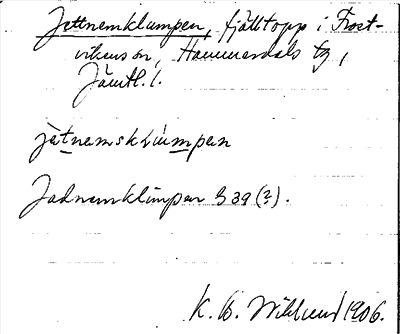 Jettnemklumpen, fjälltopp i Frost-
vikens sn, Hammerdals tg,
Jämtl. l.
jetnemsklumpen
Jadnemklimpen G 39 (?).
K. B. Wiklund 1906.